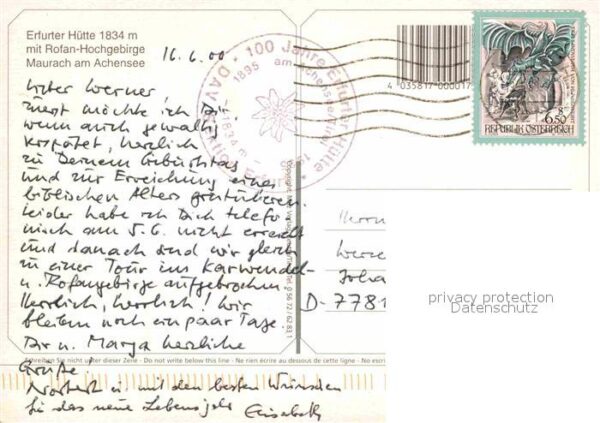 Erfurter Hütte 1834 m
mit Rofan-Hochgebirge
Maurach am Achensee
16.6.00
Lieber Werner
zuerst möchte ich Dir
wenn auch gewaltig
verspätet, herzlich
zu Deinem Geburtstag
und zur Erreichung eines
biblischen Alters gratulieren.
Leider habe ich Dich telefo-
nisch am 5.6. nicht erreicht
und danach sind wir gleich
zu einer Tour ins Karwendel-
u. Rofangebirge aufgebrochen.
Herrlich, herrlich! Wir
bleiben noch ein paar Tage.
Dir u. Marga herzliche
Grüße!
Norbert u. mit den besten Wünschen
für das neue Lebensjahr Elisabeth
Schreiben Sie nicht unter dieser Zeile - Do not write below this line - Ne rien écrire au dessous de cette ligne - No escribir
100 Jahre Erfurter Hütte
1895 am Achensee/Tirol
1834 m
DAV Sektion Erfurt
4 035817 000017
6.50
REPUBLIK ÖSTERREICH
Herrn
D-7781
privacy protection
Datenschutz